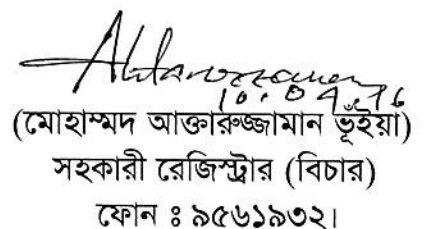 Aktaruzzaman
10.04.16
(মোহাম্মদ আক্তারুজ্জামান ভূঁইয়া)
সহকারী রেজিস্ট্রার (বিচার)
ফোন ঃ ৯৫৬১৯৩২।